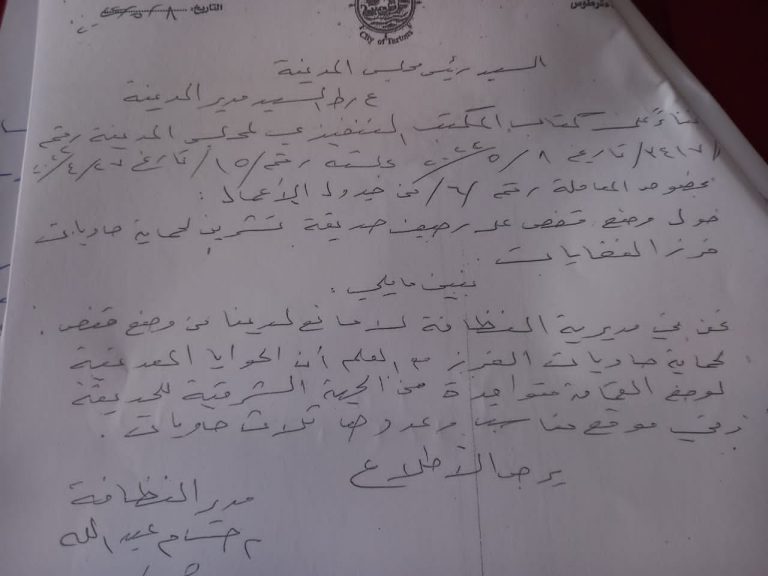 طرطوس
التاريخ: ٨ / ٥ /
City of Tartous
السيد رئيس مجلس المدينة
ع/ط السيد مدير المدينة
بناءً على كتاب المكتب التنفيذي لمجلس المدينة رقم
/٣٤١٧/ تاريخ ٨ / ٥ / ٢٠٢٢ جلسته رقم /١٥/ تاريخ ٢٧ / ٤ / ٢٠٢٢
بخصوص المعاملة رقم /٦/ من جدول الأعمال :
حول وضع قفص على رصيف حديقة تشرين لحماية حاويات
فرز النفايات .
نبين مايلي :
نحن في مديرية النظافة لا مانع لدينا من وضع قفص
لحماية حاويات الفرز مع العلم أن الحوايا المعدنية
لوضع القمامة متواجدة من الجهة الشرقية للحديقة
في موقع مناسب وعددها ثلاث حاويات .
يرجى الاطلاع
مدير النظافة
م حسام عبد الله